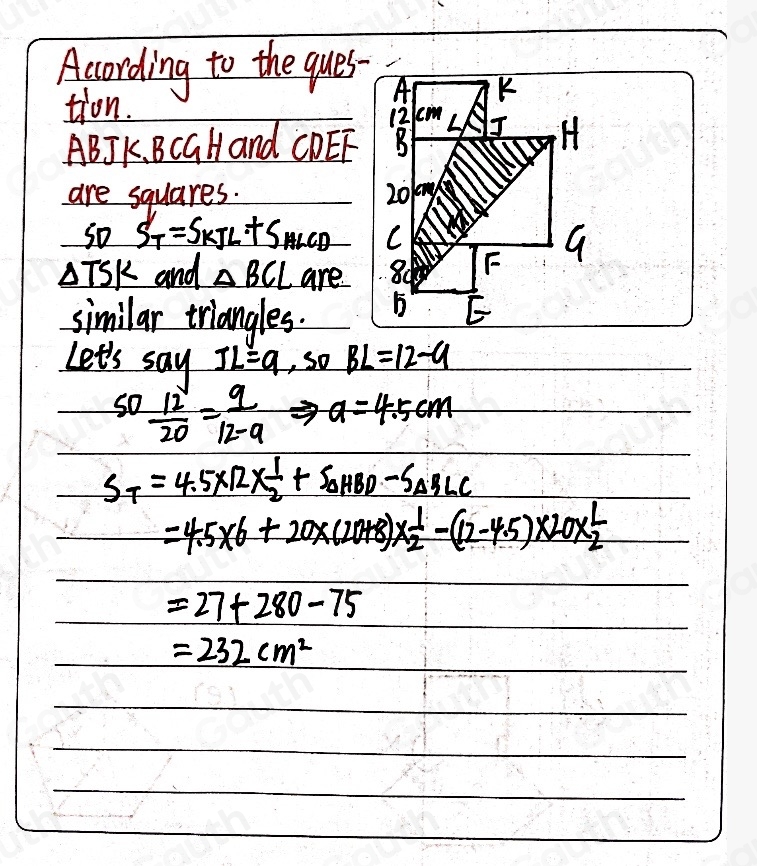 According to the ques-
tion.
ABJK, BCGH and CDEF
are squares.
so S_T = S_KJL + S_HLCD
△TSK and △BCL are
similar triangles.
Let's say JL=a, so BL=12-a
so 12/20 = a/(12-a) ⇒ a=4.5cm
S_T = 4.5×12×1/2 + S_△HBD - S_△BLC
=4.5×6 + 20×(20+8)×1/2 - (12-4.5)×20×1/2
=27+280-75
=232cm²
A K
12cm L J
B H
20cm
C G
8cm F
D E